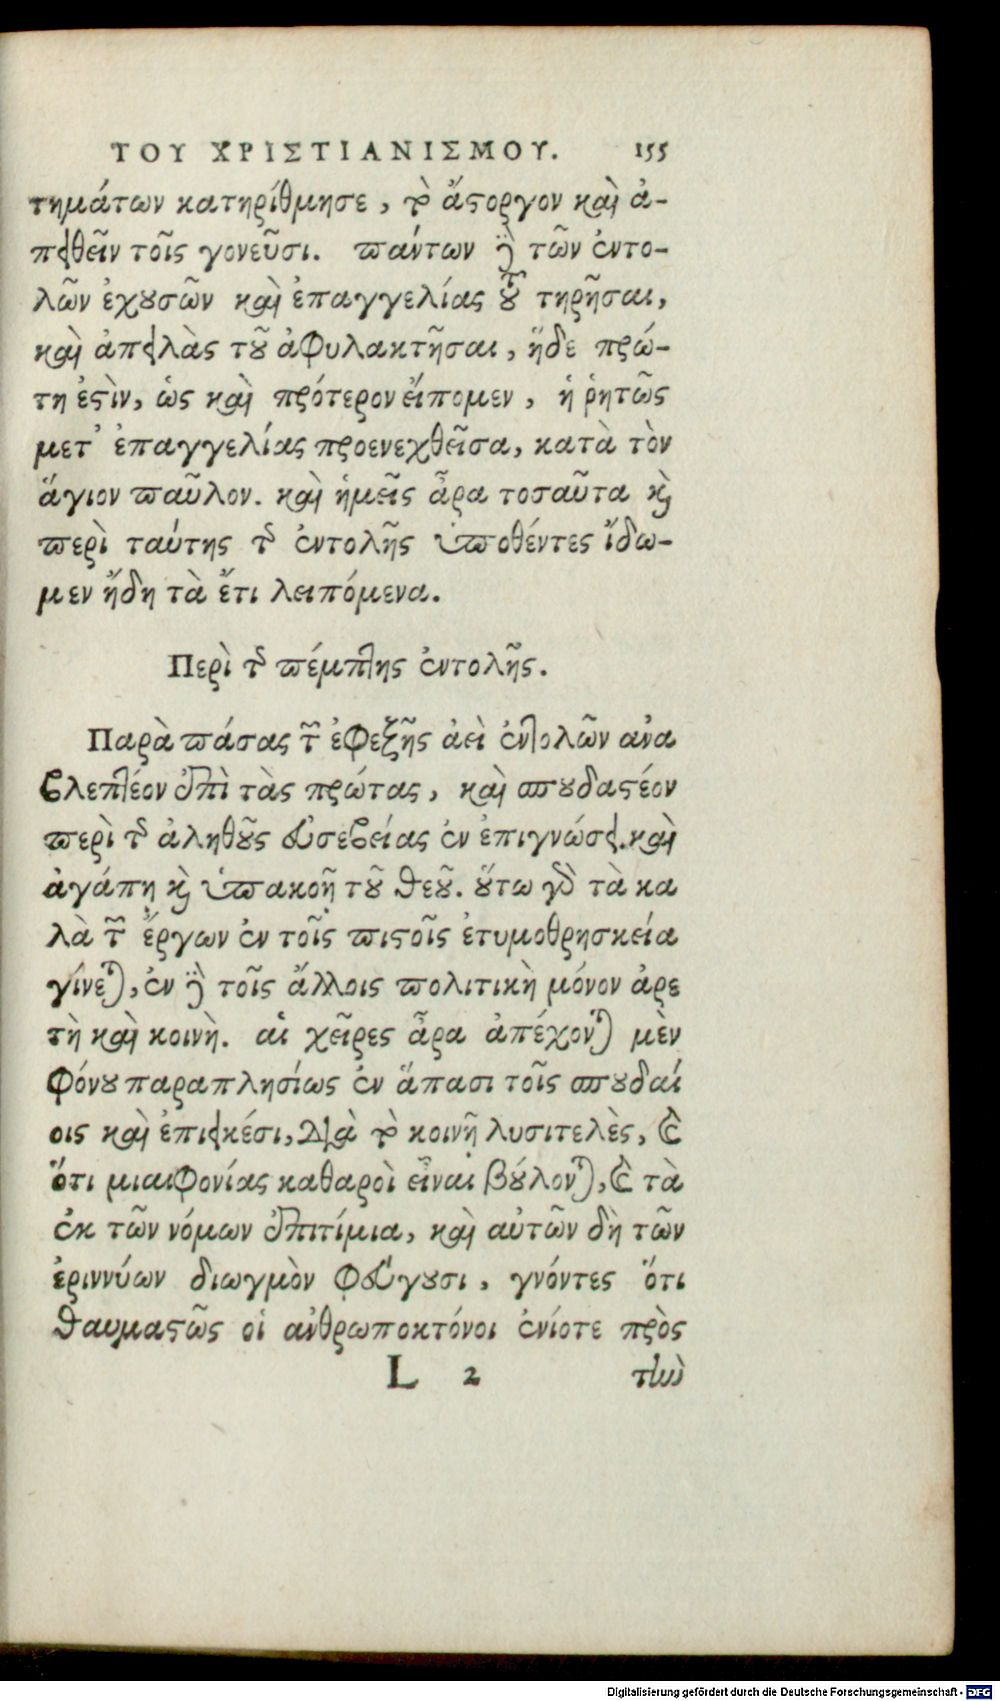 ΤΟΥ ΧΡΙΣΤΙΑΝΙΣΜΟΥ. 155
τημάτων κατηρίθμησε, τὸ ἄστοργον καὶ ἀ-
πειθεῖν τοῖς γονεῦσι. πάντων δὲ τῶν ἐντο-
λῶν ἐχουσῶν καὶ ἐπαγγελίας τοῦ τηρῆσαι,
καὶ ἀπειλὰς τοῦ ἀφυλακτῆσαι, ἥδε πρώ-
τη ἐστὶν, ὡς καὶ πρότερον εἴπομεν, ἡ ῥητῶς
μετ' ἐπαγγελίας προενεχθεῖσα, κατὰ τὸν
ἅγιον παῦλον. καὶ ἡμεῖς ἆρα τοσαῦτα καὶ
περὶ ταύτης τῆς ἐντολῆς ὑποθέντες ἴδω-
μεν ἤδη τὰ ἔτι λειπόμενα.
Περὶ τῆς πέμπτης ἐντολῆς.
Παρὰ πάσας τῶν ἐφεξῆς ἀεὶ ἐντολῶν ἀνα
βλεπτέον ἐπὶ τὰς πρώτας, καὶ σπουδαστέον
περὶ τῆς ἀληθοῦς εὐσεβείας ἐν ἐπιγνώσει καὶ
ἀγάπη καὶ ὑπακοῇ τοῦ θεοῦ. οὕτω γὰρ τὰ κα
λὰ τῶν ἔργων ἐν τοῖς πιστοῖς ἐτυμοθρησκεία
γίνεται, ἐν δὲ τοῖς ἄλλοις πολιτικὴ μόνον ἀρε
τὴ καὶ κοινὴ. αἱ χεῖρες ἆρα ἀπέχονται μὲν
φόνου παραπλησίως ἐν ἅπασι τοῖς σπουδαί
οις καὶ ἐπιεικέσι, διὰ τὸ κοινῇ λυσιτελὲς, καὶ
ὅτι μιαιφονίας καθαροὶ εἶναι βούλονται, καὶ τὰ
ἐκ τῶν νόμων ἐπιτίμια, καὶ αὐτῶν δὴ τῶν
ἐριννύων διωγμὸν φεύγουσι, γνόντες ὅτι
θαυμαστῶς οἱ ἀνθρωποκτόνοι ἐνίοτε πρὸς
L 2 τὴν
Digitalisierung gefördert durch die Deutsche Forschungsgemeinschaft - DFG